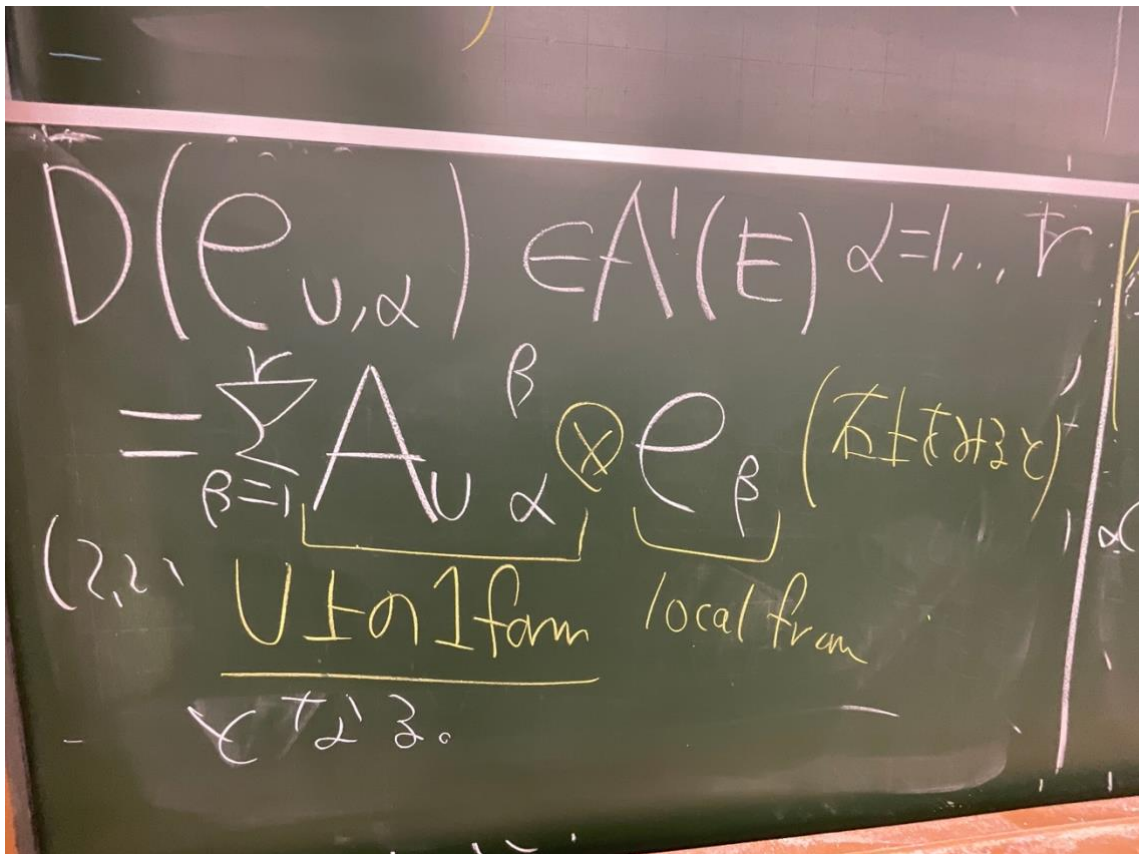 D(e_{U,α}) ∈ A¹(E) α=1,..,r
= Σ_{β=1}^{r} A_{U α}^{β} ⊗ e_β (右上をみると)
U上の1form local fram
となる。